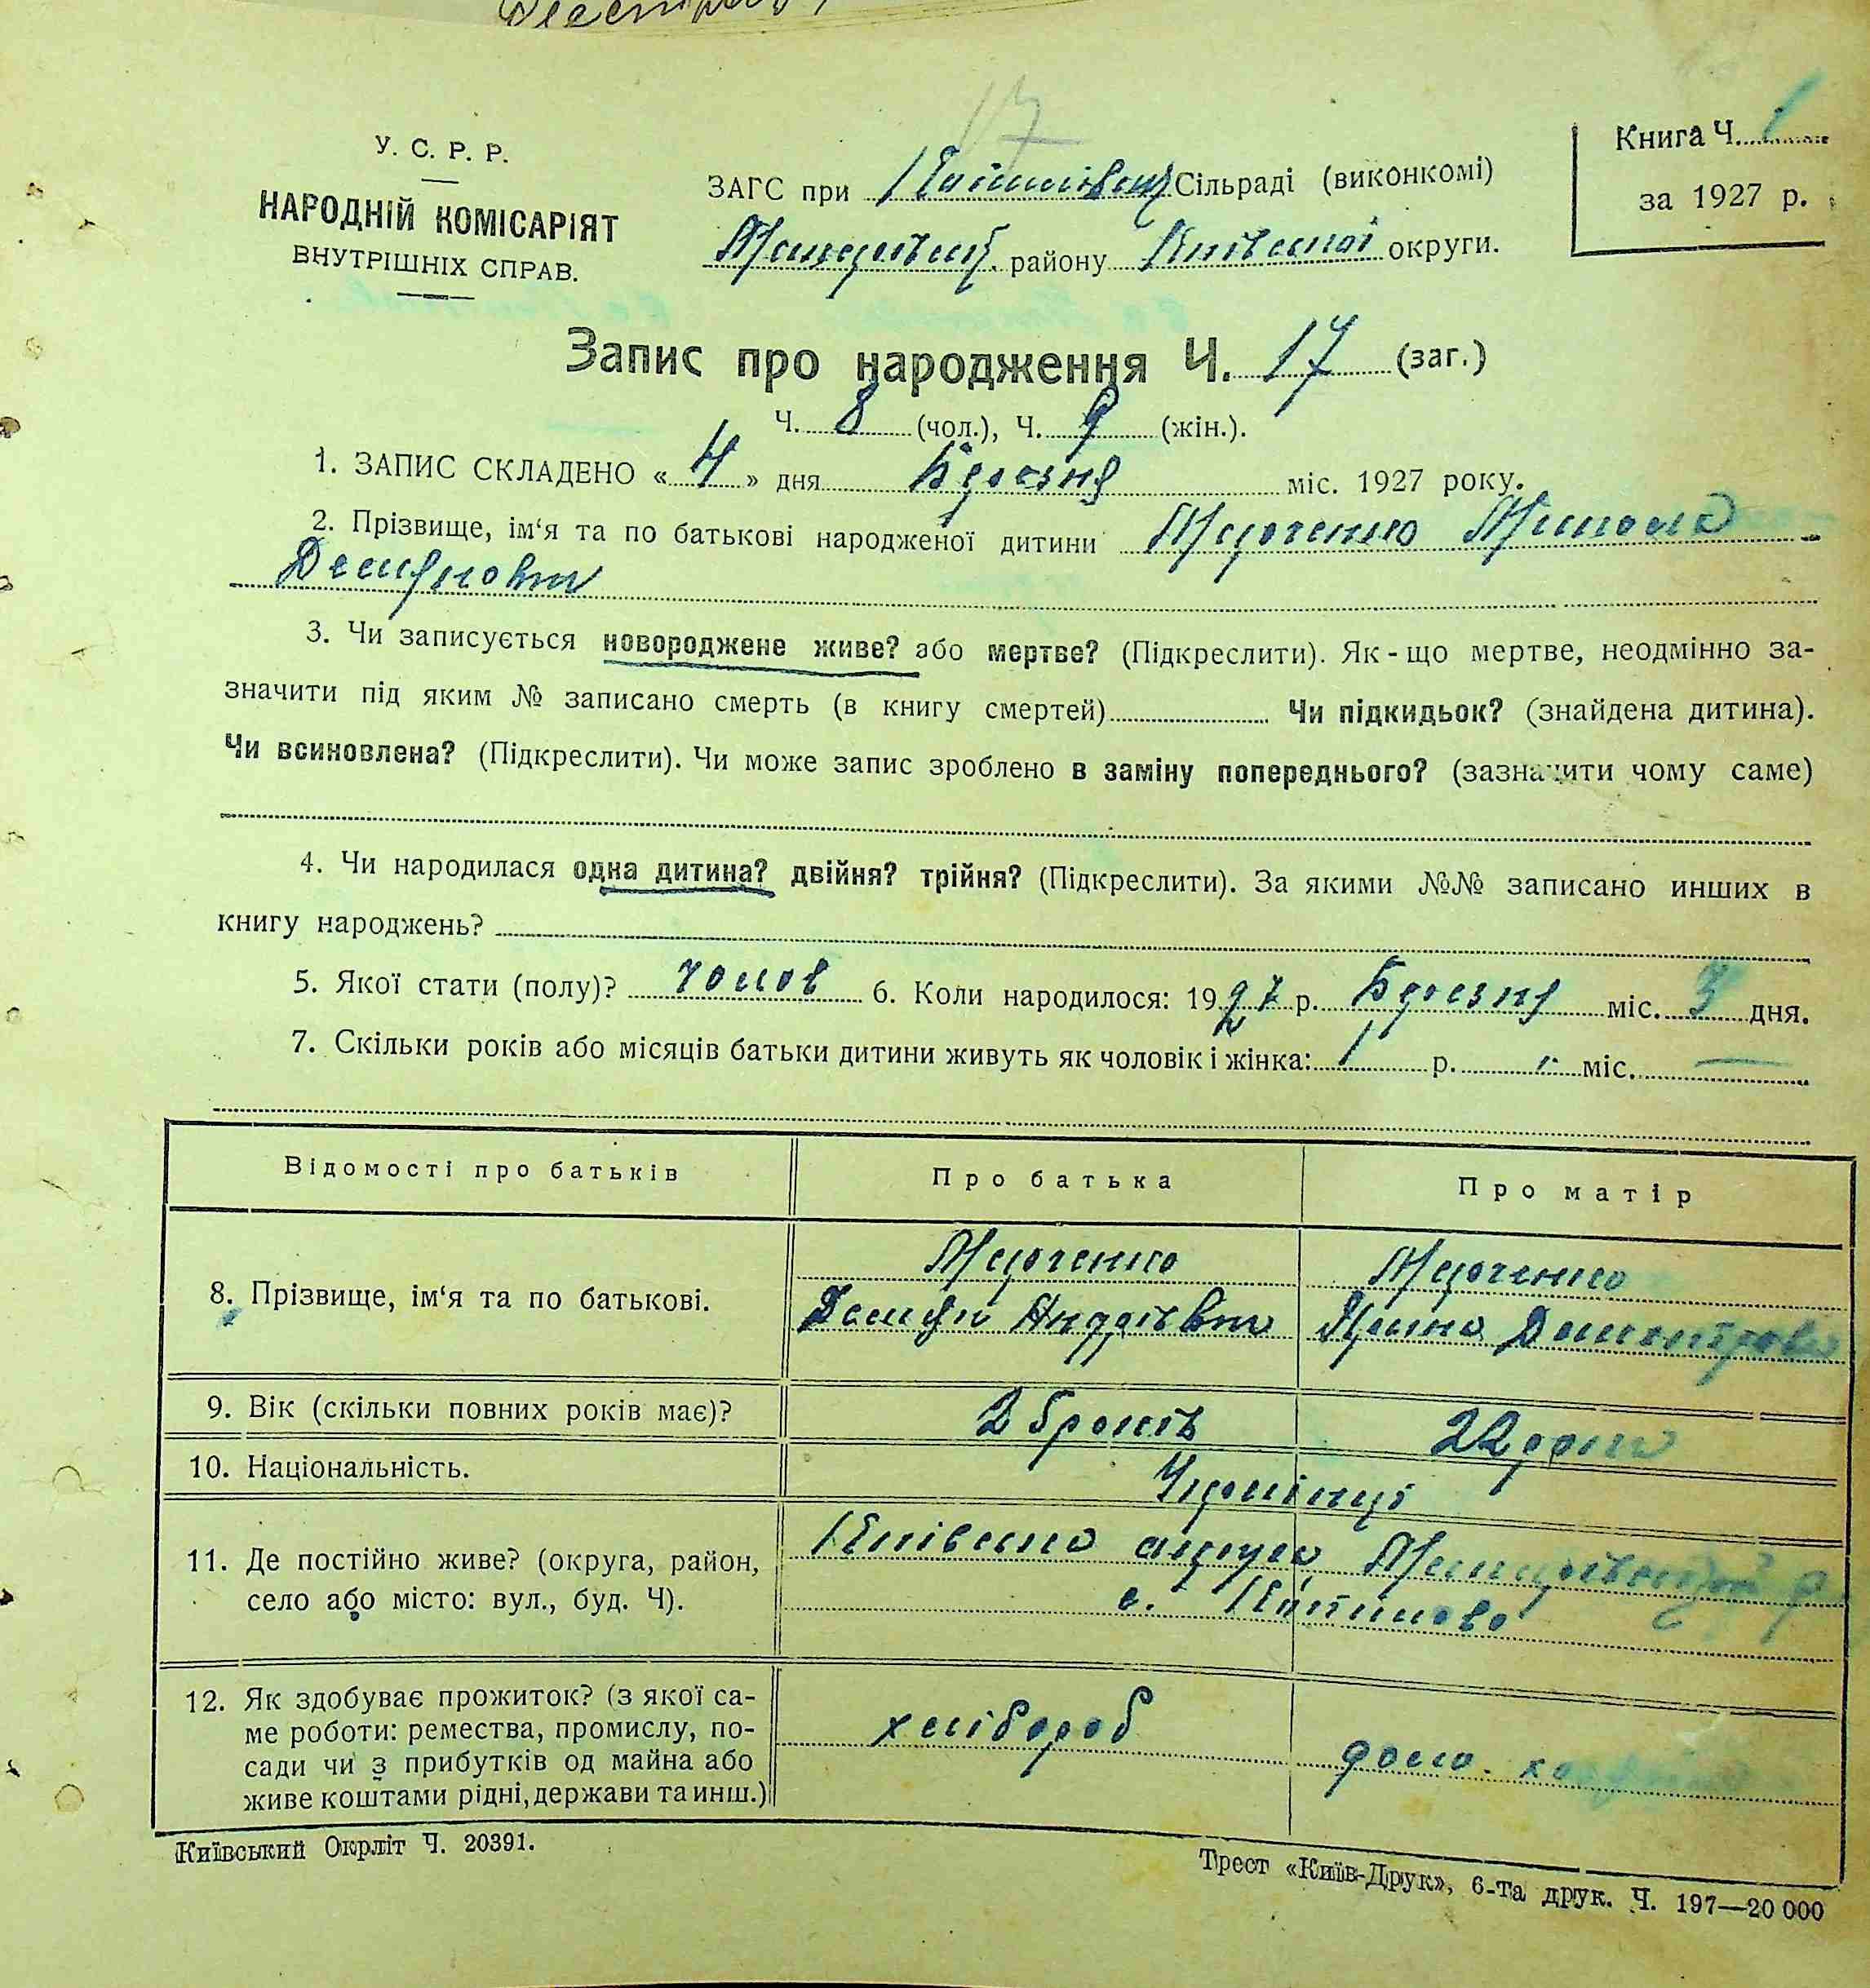 17
У. С. Р. Р.
НАРОДНІЙ КОМІСАРІЯТ
ВНУТРІШНІХ СПРАВ.
ЗАГС при Сільраді (виконкомі)
району Київської округи.
Книга Ч. 1
за 1927 р.
Запис про народження Ч. 17 (заг.)
Ч. 8 (чол.), Ч. 9 (жін.).
1. ЗАПИС СКЛАДЕНО « 4 » дня Березня міс. 1927 року.
2. Прізвище, ім‘я та по батькові народженої дитини Марченко Микола
Демянович
3. Чи записується новороджене живе? або мертве? (Підкреслити). Як-що мертве, неодмінно за-
значити під яким № записано смерть (в книгу смертей) Чи підкидьок? (знайдена дитина).
Чи всиновлена? (Підкреслити). Чи може запис зроблено в заміну попереднього? (зазначити чому саме)
4. Чи народилася одна дитина? двійня? трійня? (Підкреслити). За якими №№ записано инших в
книгу народжень?
5. Якої стати (полу)? чолов 6. Коли народилося: 1927 р. Березня міс. 3 дня.
7. Скільки років або місяців батьки дитини живуть як чоловік і жінка: 1 р. міс. —
Відомості про батьків
Про батька
Про матір
8. Прізвище, ім‘я та по батькові.
Марченко
Демян Андрієвич
Марченко
9. Вік (скільки повних років має)?
26 років
22 роки
10. Національність.
Українці
11. Де постійно живе? (округа, район,
село або місто: вул., буд. Ч).
Київська округа
с.
12. Як здобуває прожиток? (з якої са-
ме роботи: ремества, промислу, по-
сади чи з прибутків од майна або
живе коштами рідні, держави та инш.)
хлібороб
дом.
Київський Окрліт Ч. 20391.
Трест «Київ-Друк», 6-та друк. Ч. 197—20 000